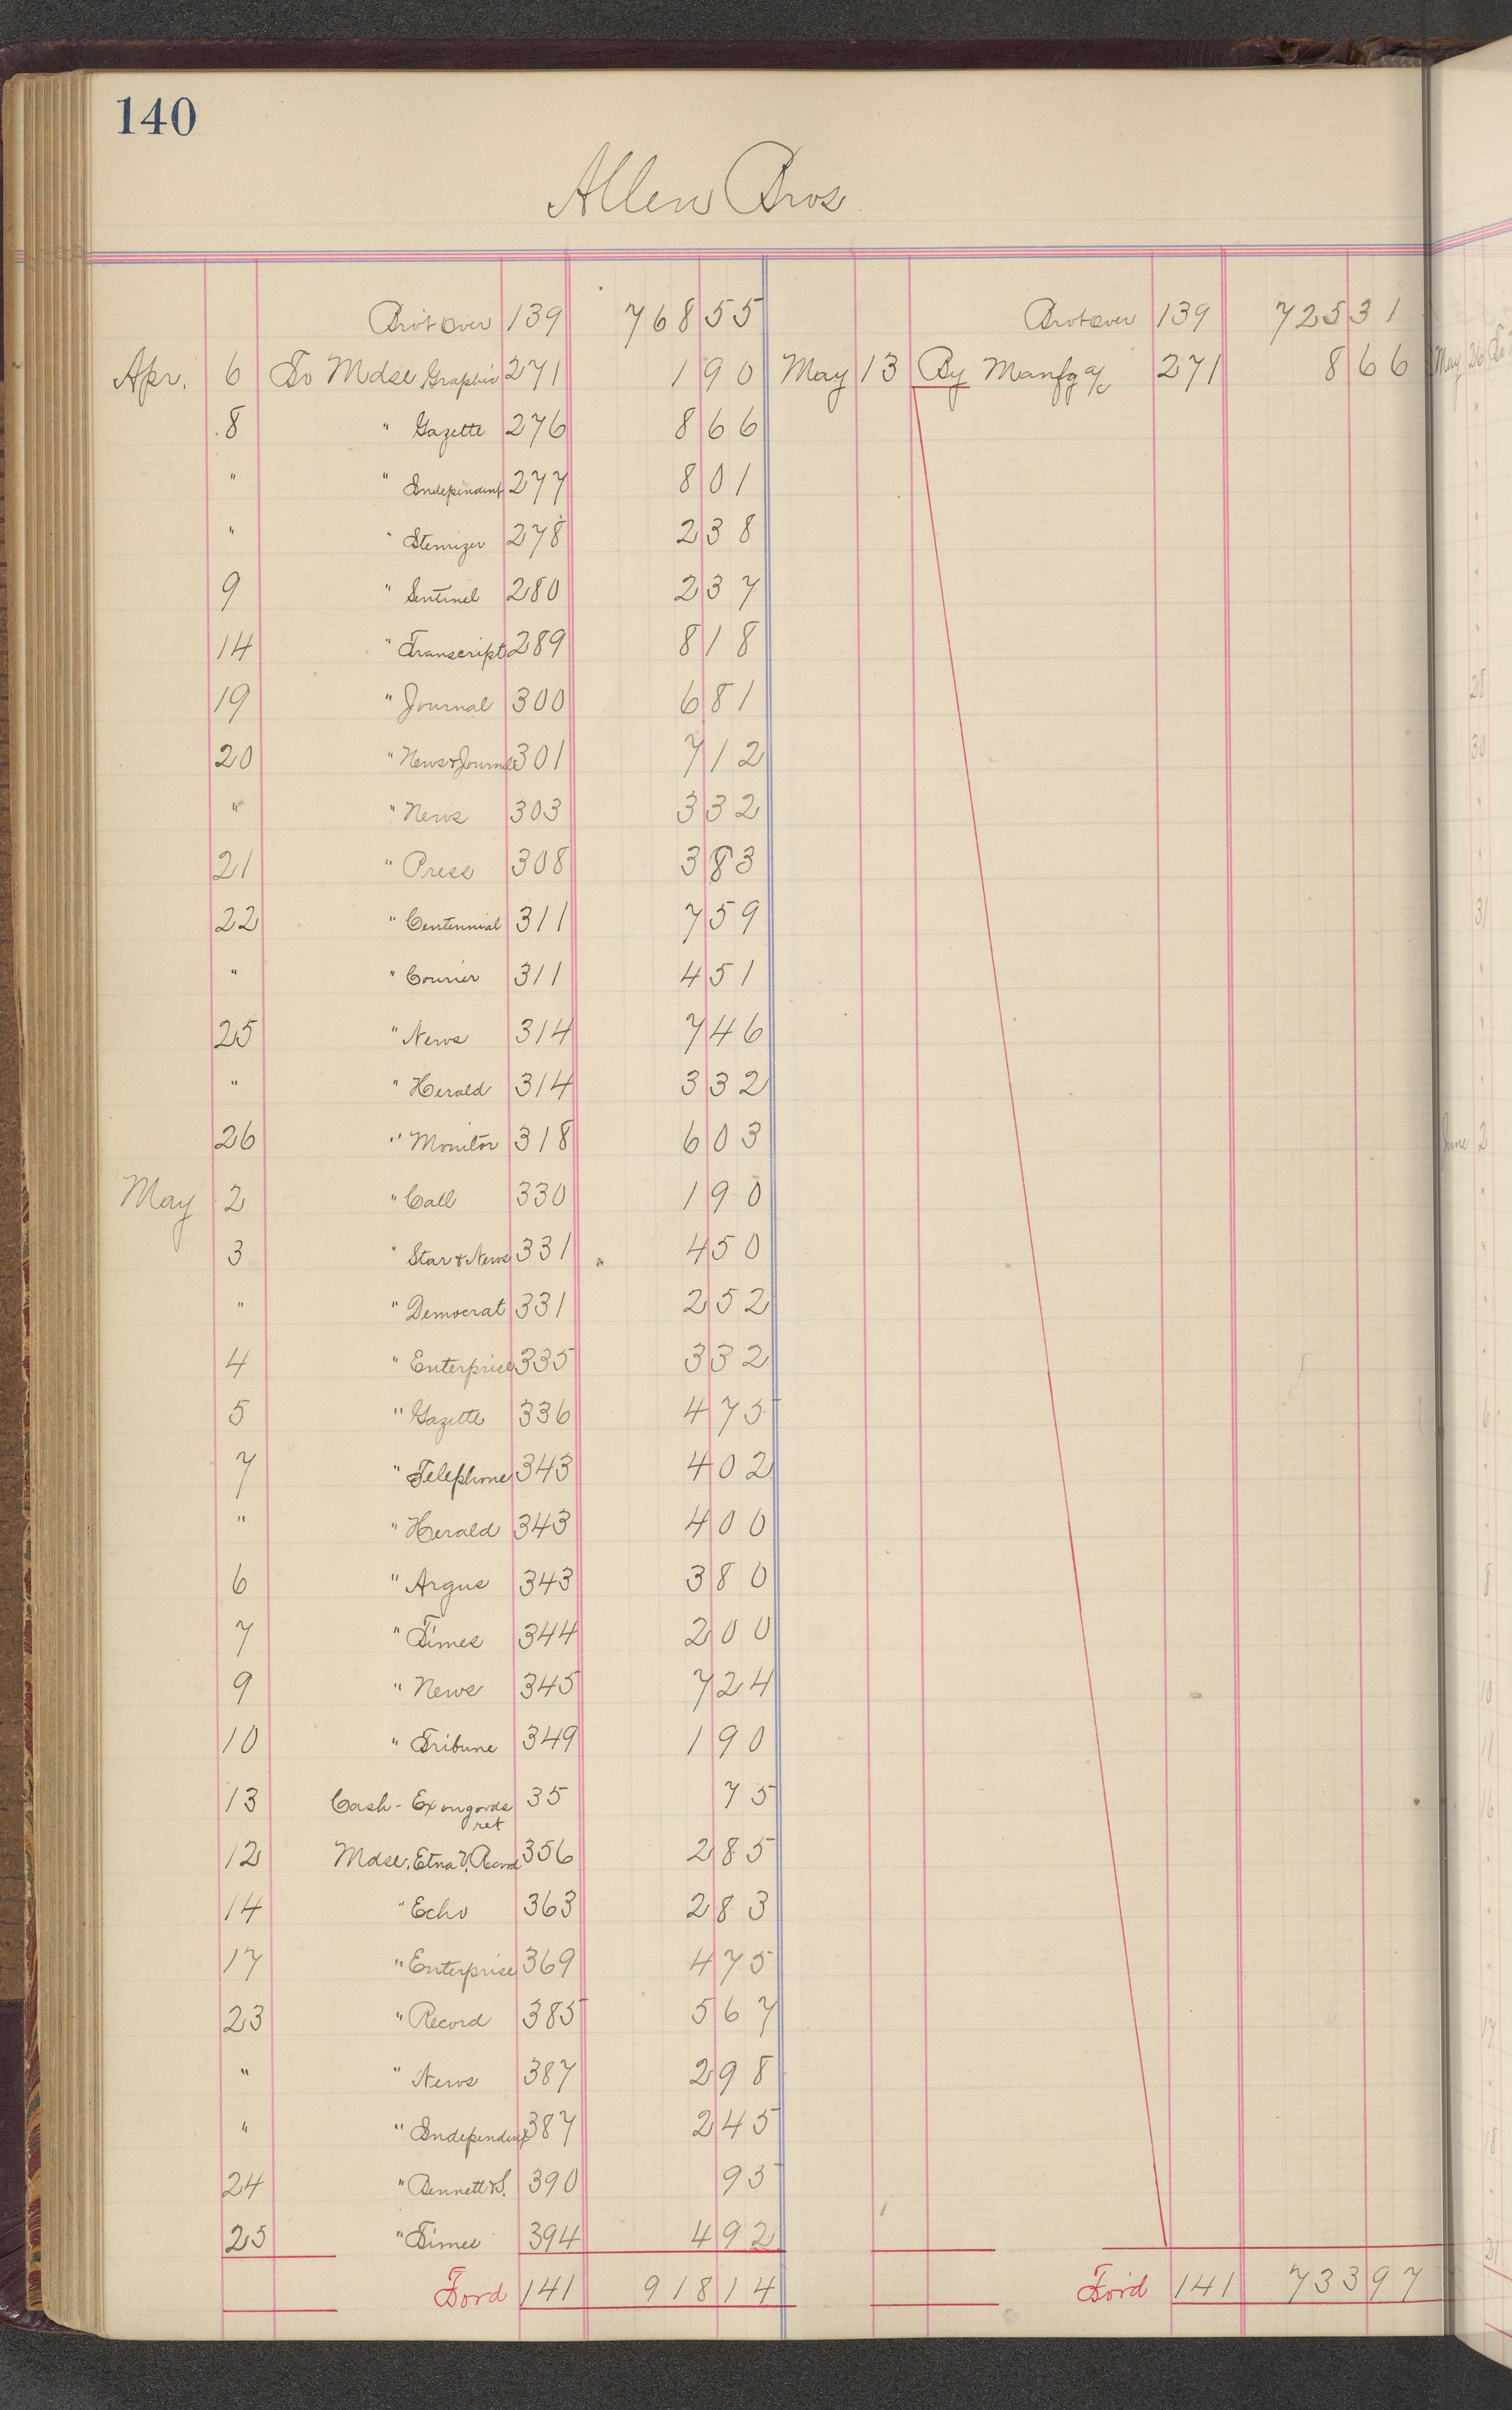 140
Allen Bros.
Bro't over 139 768 55 Brot over 139 725 31
Apr. 6 To Mdse Graphic 271 1 90 May 13 By Manfg a/c 271 8 66
8 " Gazette 276 8 66
" " Independent 277 8 01
" " Itemizer 278 2 38
9 " Sentinel 280 2 37
14 " Transcript 289 8 18
19 " Journal 300 6 81
20 " News & Journal 301 7 12
" " News 303 3 32
21 " Press 308 3 83
22 " Centennial 311 7 59
" " Courier 311 4 51
25 " News 314 7 46
" " Herald 314 3 32
26 " Monitor 318 6 03
May 2 " Call 330 1 90
3 " Star & News 331 4 50
" " Democrat 331 2 52
4 " Enterprise 335 3 32
5 " Gazette 336 4 75
7 " Telephone 343 4 02
" " Herald 343 4 00
6 " Argus 343 3 80
7 " Times 344 2 00
9 " News 345 7 24
10 " Tribune 349 1 90
13 Cash - Ex on goods ret 35 75
12 Mdse. Etna V. Record 356 2 85
14 " Echo 363 2 83
17 " Enterprise 369 4 75
23 " Record 385 5 67
" " News 387 2 98
" " Independent 387 2 45
24 " Bennett & S. 390 95
25 " Times 394 4 92
Ford 141 918 14 For'd 141 733 97
May 26 To
28
30
31
June 2
6
8
10
11
16
17
18
21